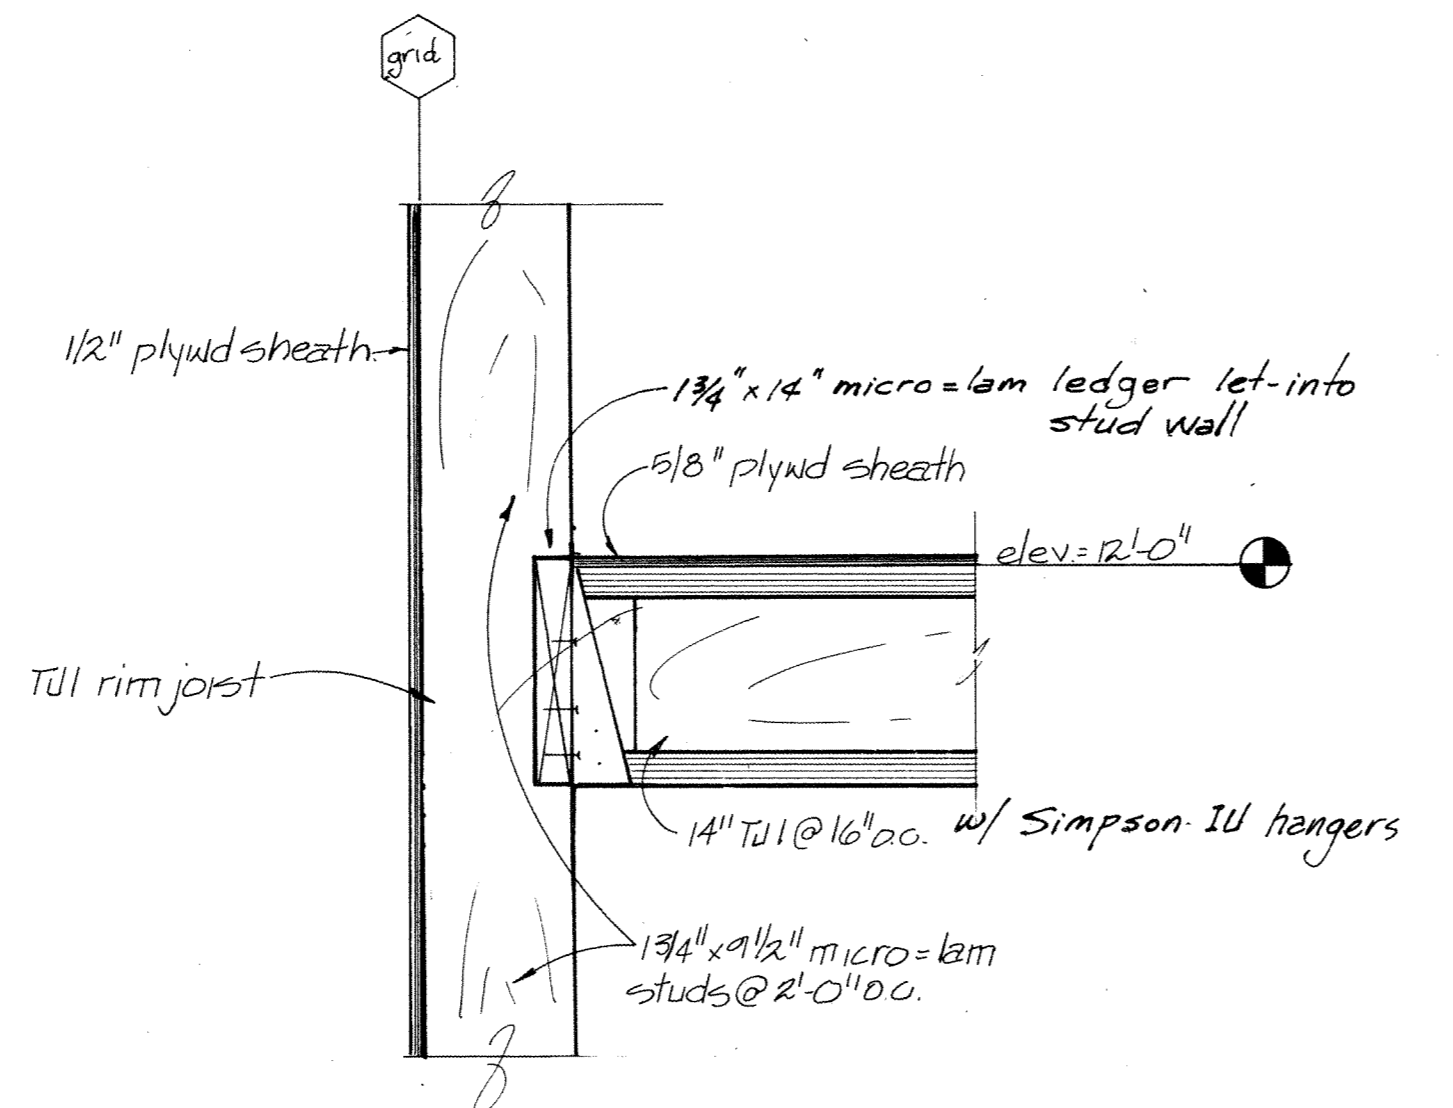 grid
1/2" plywd sheath.
1 3/4" x 14" micro=lam ledger let-into
stud wall
5/8" plywd sheath
elev.= 12'-0"
TJI rim joist
14" TJI @ 16" o.c. w/ Simpson IU hangers
1 3/4" x 9 1/2" micro=lam
studs @ 2'-0" o.c.